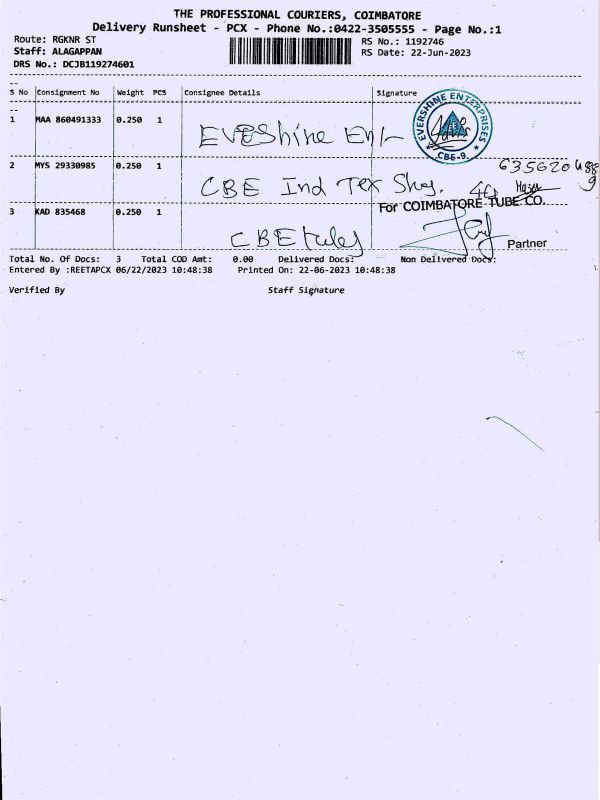 THE PROFESSIONAL COURIERS, COIMBATORE
Delivery Runsheet - PCX - Phone No.:0422-3505555 - Page No.:1
Route: RGKNR ST
RS No.: 1192746
Staff: ALAGAPPAN
RS Date: 22-Jun-2023
DRS No.: DCJB119274601
S No Consignment No Weight PCS Consignee Details Signature
1 MAA 860491333 0.250 1
EVERSHINE ENTERPRISES
CBE-9
EVEShine Ent
2 MYS 29330985 0.250 1
CBE Ind Tex
For COIMBATORE TUBE CO.
3 KAD 835468 0.250 1
CBE tubes
Partner
Total No. Of Docs: 3 Total COD Amt: 0.00 Delivered Docs: Non Delivered Docs:
Entered By :REETAPCX 06/22/2023 10:48:38 Printed On: 22-06-2023 10:48:38
Verified By Staff Signature